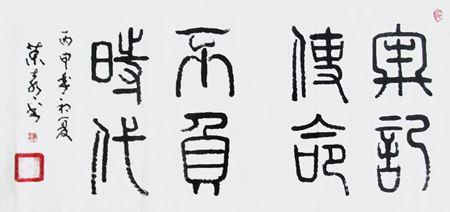 牢記
使命
不負
時代
丙申年初夏